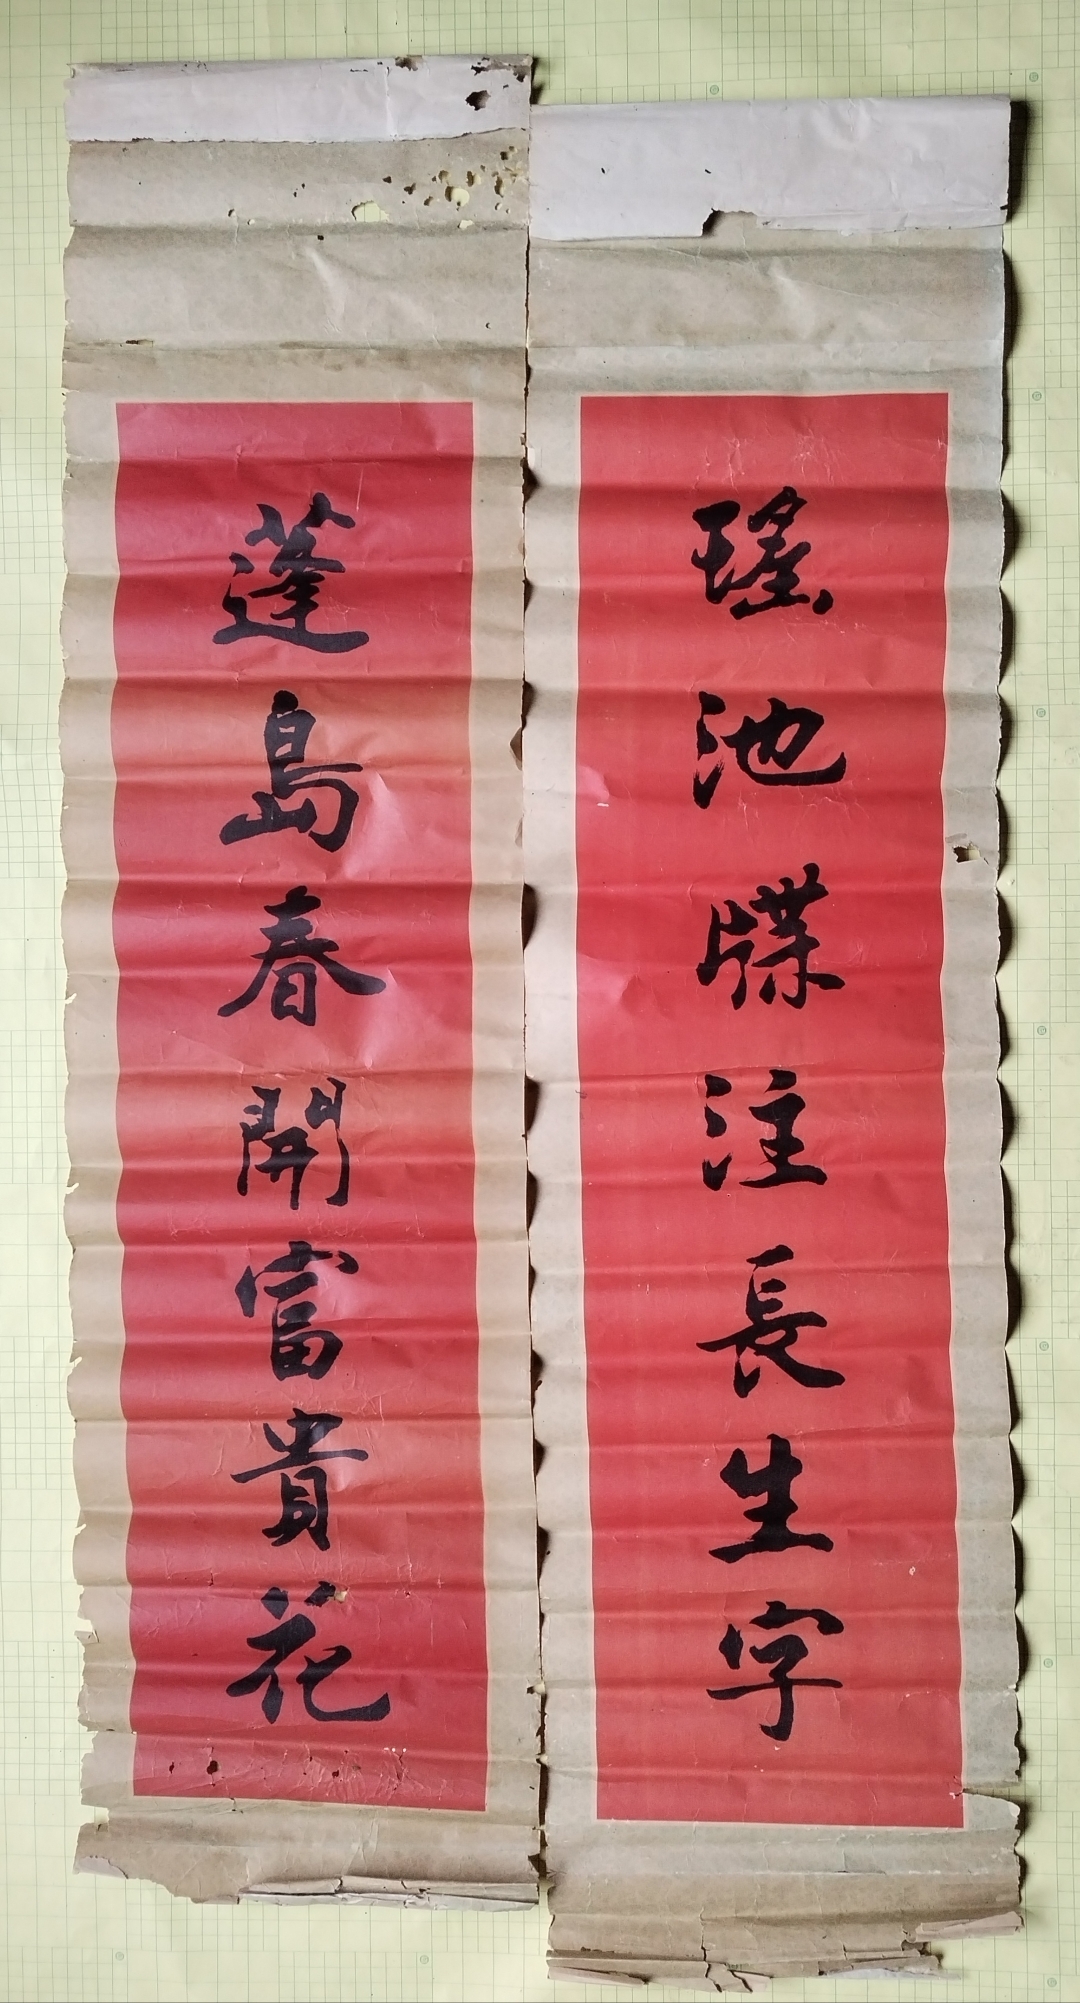 瑤池牒注長生字
蓬島春開富貴花